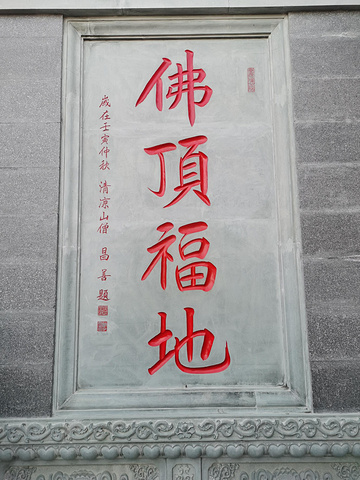 佛頂福地
歲在壬寅仲秋 清凉山僧 昌善題